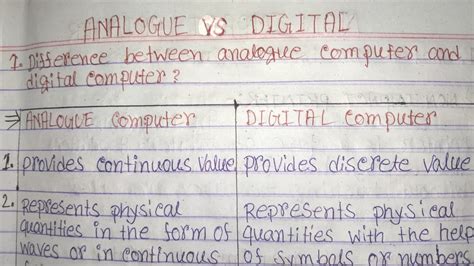 ANALOGUE VS DIGITAL
1. Difference between analogue computer and
digital computer?
⇒ ANALOGUE computer
DIGITAL computer
1. provides continuous value
provides discrete value
2. Represents physical
quantities in the form of
waves or in continuous
Represents physical
quantities with the help
of symbols or numbers